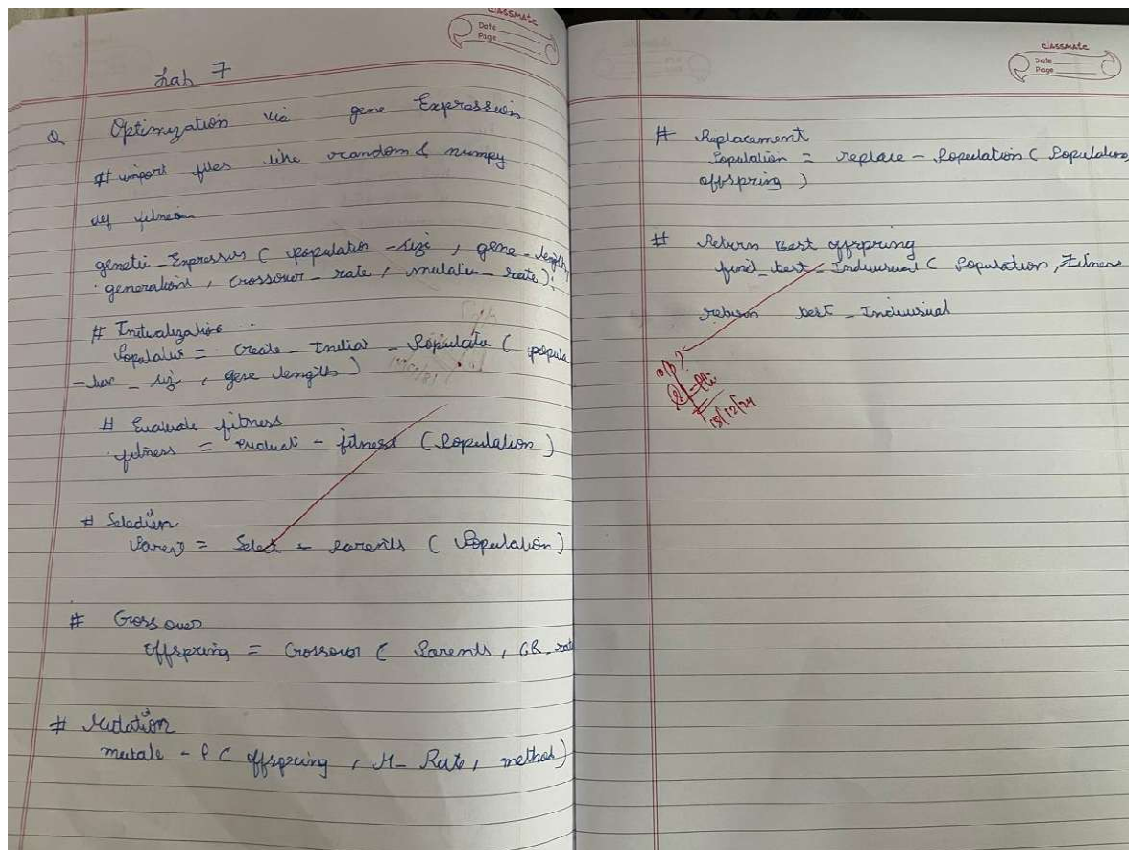 classmate
Date
Page
Lab 7
Q Optimization via gene Expression
# import files like random & numpy
def fitness
genetic_Expression ( population - size , gene - length,
generations , crossover - rate , mutation - rate ) :
# Initialization
Population = create - Initial - Population ( popula
-tion - size , gene length )
# Evaluate fitness
fitness = evaluate - fitness ( Population )
# Selection
Parents = Select - parents ( Population )
# Cross over
offspring = Crossover ( Parents , CR_rate
# Mutation
mutate - ( offspring , M_ Rate , method )
classmate
Date
Page
# Replacement
Population = replace - Population ( Population,
offspring )
# Return Best offspring
find_best_Individual ( Population, Fitness
return best _ Individual
o/p ?
18/12/24